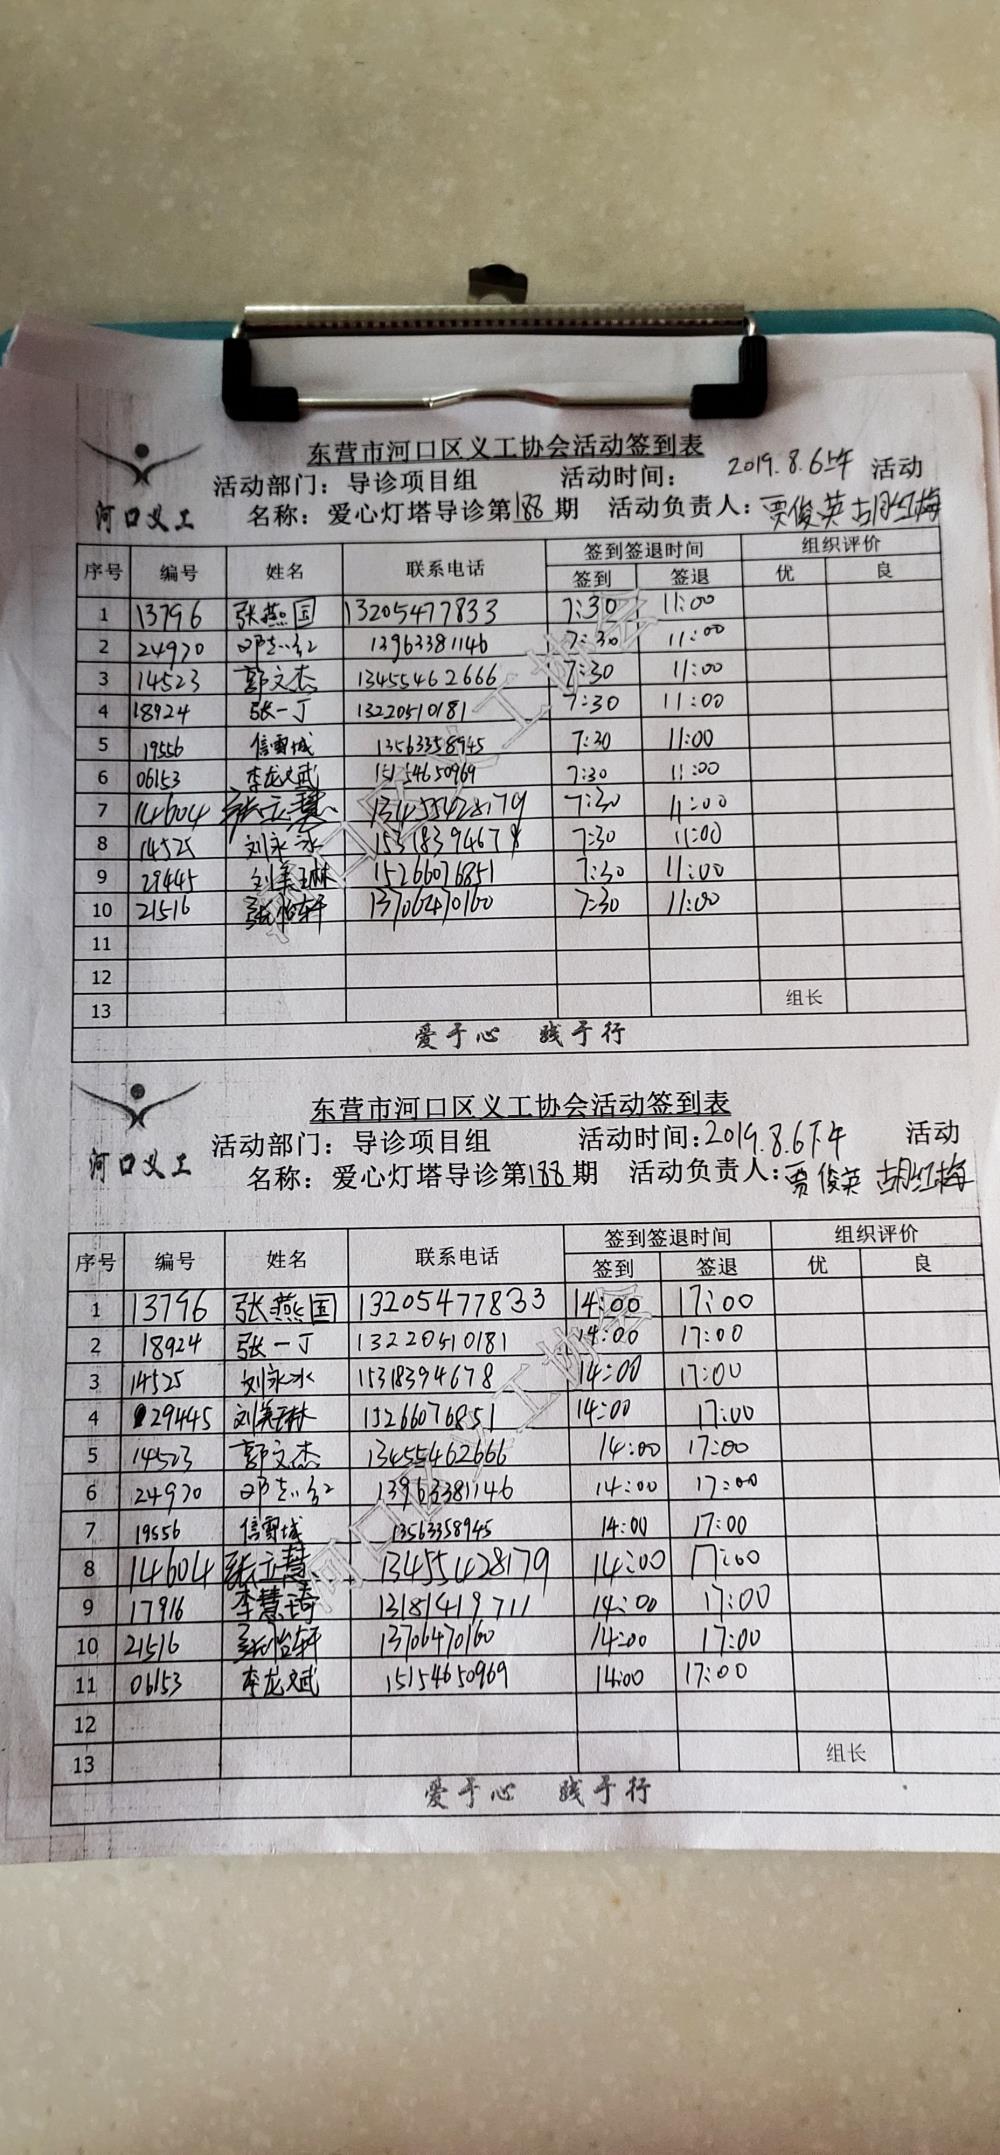 东营市河口区义工协会活动签到表
活动部门：导诊项目组 活动时间： 2019.8.6上午 活动
河口义工 名称：爱心灯塔导诊第188期 活动负责人：贾俊英 胡红梅
序号 编号 姓名 联系电话 签到签退时间 组织评价
签到 签退 优 良
1 13796 张燕国 13205477833 7:30 11:00
2 24970 邓志红 13963381146 7:30 11:00
3 14523 郭文杰 13455462666 7:30 11:00
4 18924 张一丁 13220510181 7:30 11:00
5 19556 信雪城 13563358945 7:30 11:00
6 06153 李龙斌 15154650969 7:30 11:00
7 14604 张立慧 13455428179 7:30 11:00
8 14525 刘永冰 15318394678 7:30 11:00
9 29445 刘美琳 15266076851 7:30 11:00
10 21516 怡轩 13706470160 7:30 11:00
11
12
13 组长
爱于心 践于行
东营市河口区义工协会活动签到表
活动部门：导诊项目组 活动时间：2019.8.6下午 活动
河口义工 名称：爱心灯塔导诊第188期 活动负责人：贾俊英 胡红梅
序号 编号 姓名 联系电话 签到签退时间 组织评价
签到 签退 优 良
1 13796 张燕国 13205477833 14:00 17:00
2 18924 张一丁 13220510181 14:00 17:00
3 14525 刘永冰 15318394678 14:00 17:00
4 29445 刘美琳 15266076851 14:00 17:00
5 14523 郭文杰 13455462666 14:00 17:00
6 24970 邓志红 13963381146 14:00 17:00
7 19556 信雪城 13563358945 14:00 17:00
8 14604 张立慧 13455428179 14:00 17:00
9 17916 李慧琦 13181419711 14:00 17:00
10 21516 怡轩 13706470160 14:00 17:00
11 06153 李龙斌 15154650969 14:00 17:00
12
13 组长
爱于心 践于行
河口区义工协会
河口区义工协会